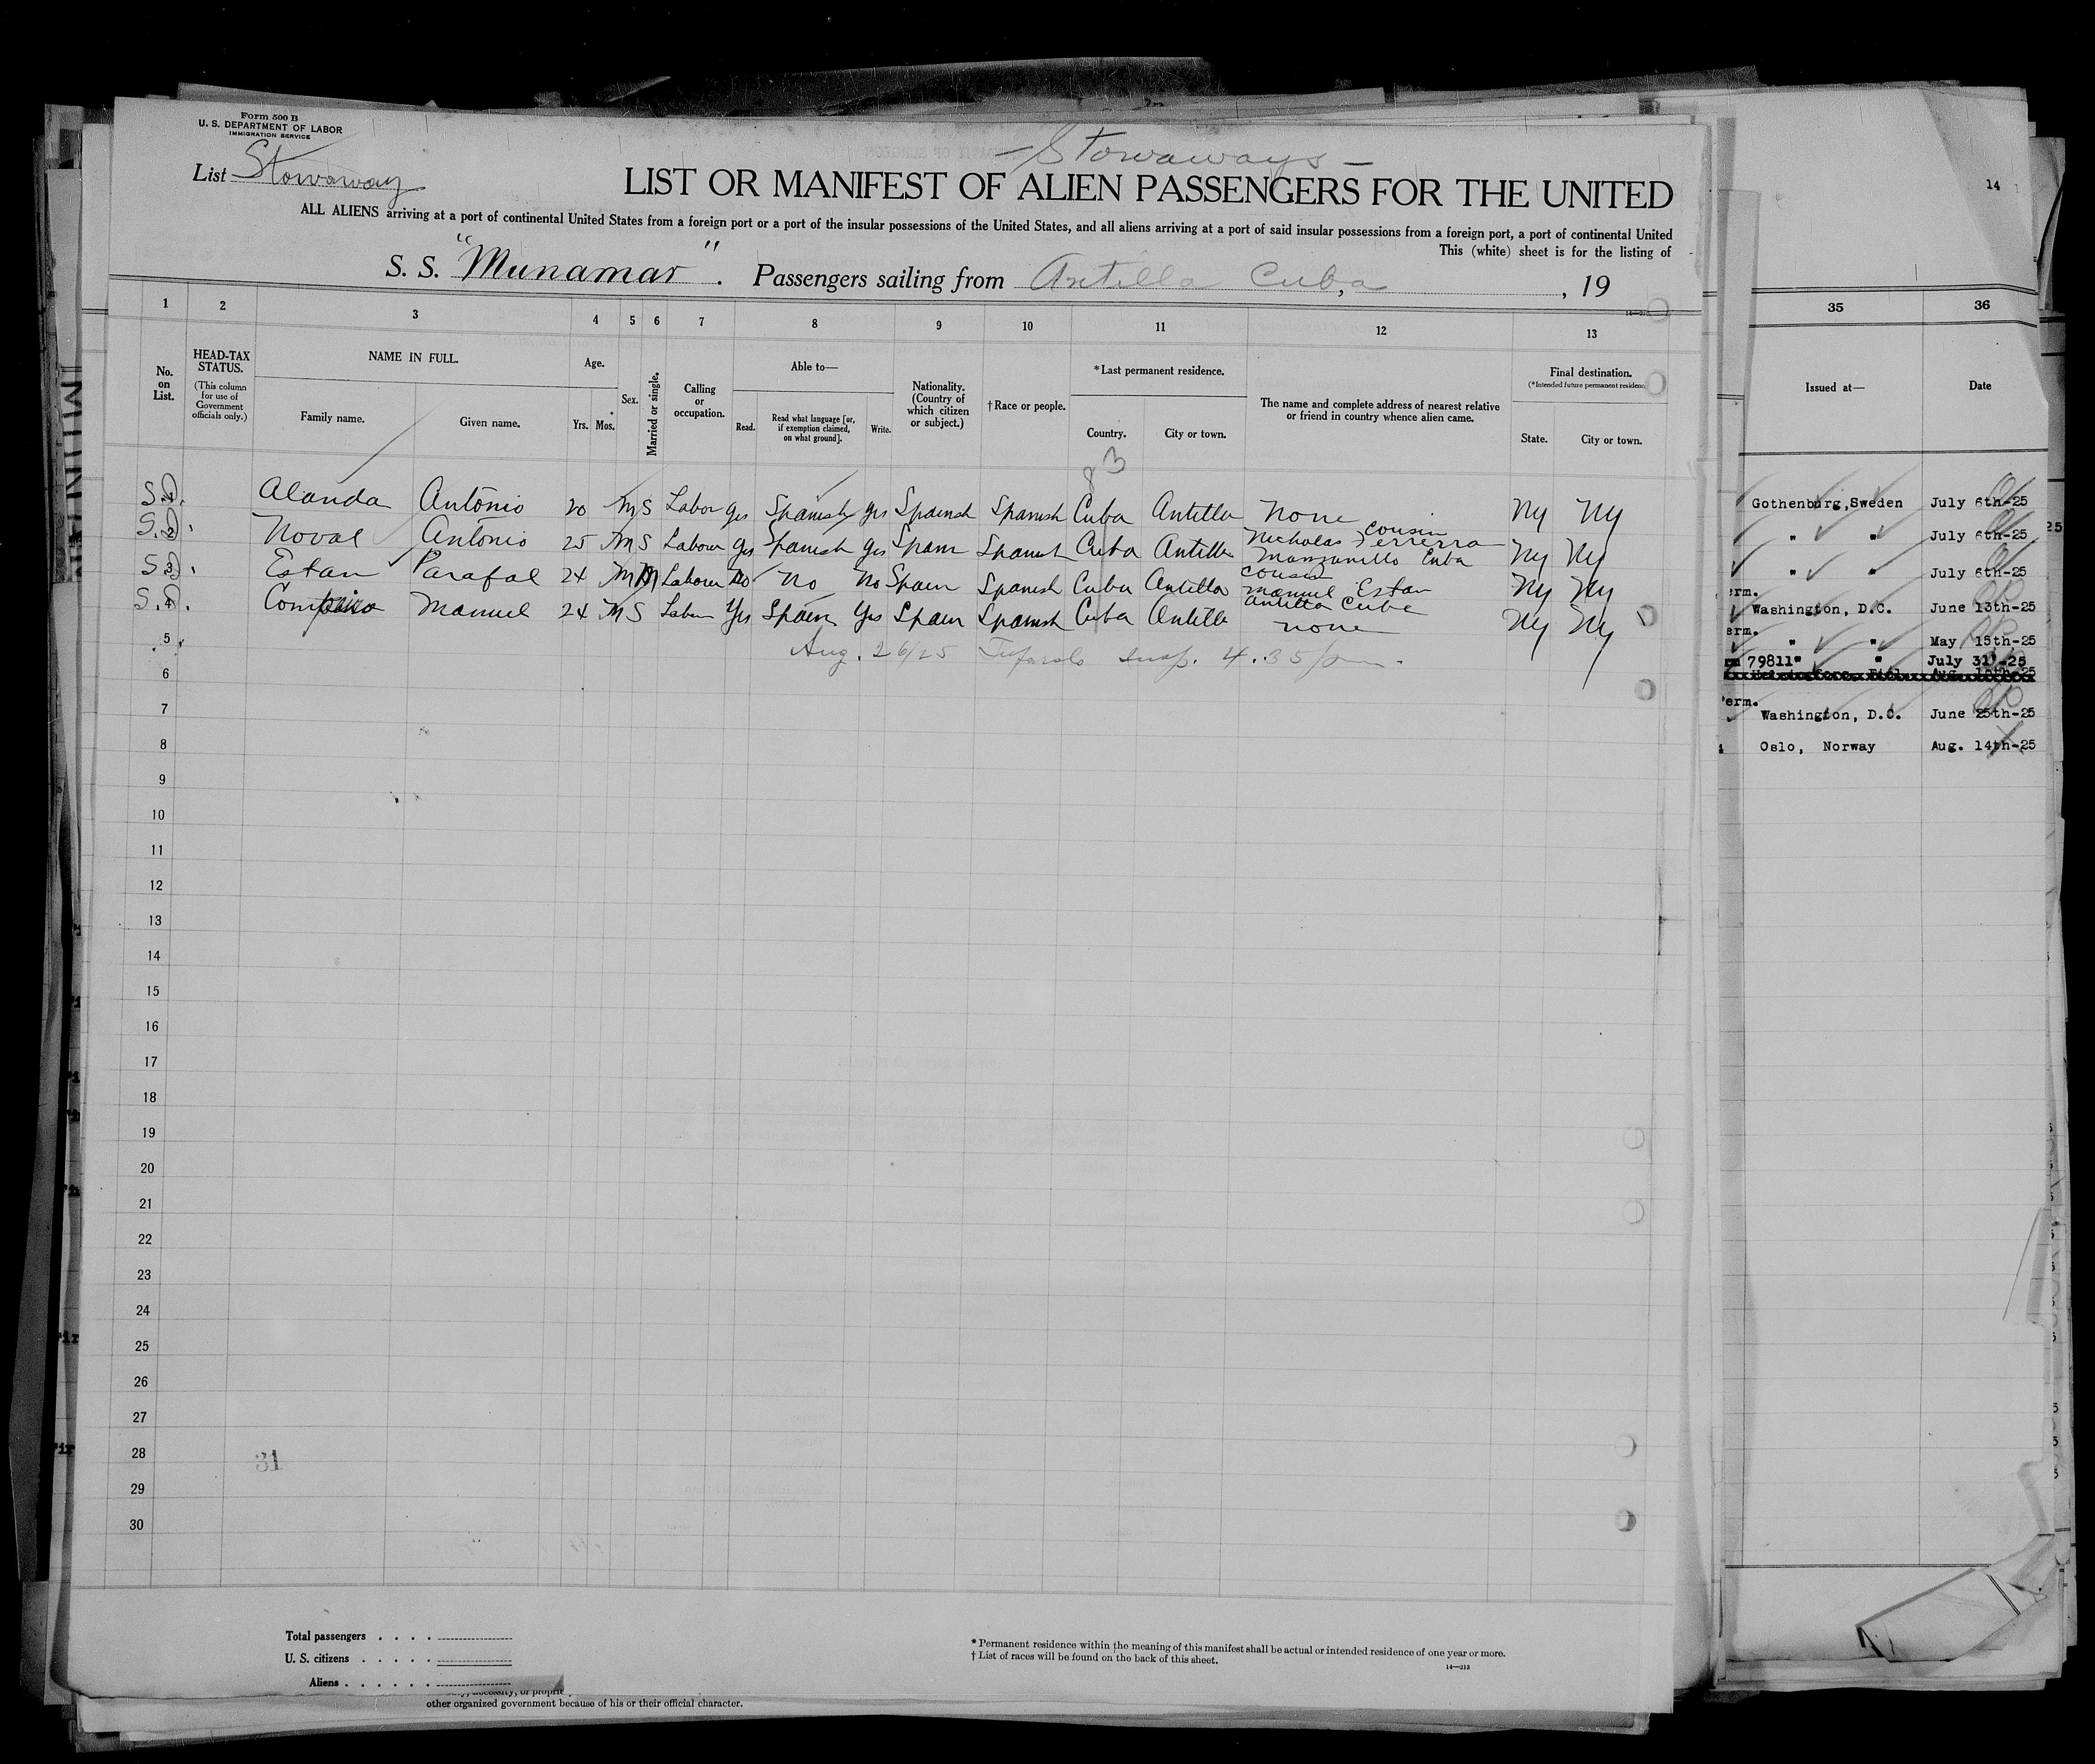 Form 500 B
U. S. DEPARTMENT OF LABOR
IMMIGRATION SERVICE
List Stowaway
— Stowaways —
LIST OR MANIFEST OF ALIEN PASSENGERS FOR THE UNITED
ALL ALIENS arriving at a port of continental United States from a foreign port or a port of the insular possessions of the United States, and all aliens arriving at a port of said insular possessions from a foreign port, a port of continental United
This (white) sheet is for the listing of
S. S. "Munamar". Passengers sailing from Antilla Cuba, , 19
1 2 3 4 5 6 7 8 9 10 11 12 13
No. on List.
HEAD-TAX STATUS.
(This column for use of Government officials only.)
NAME IN FULL.
Family name. Given name.
Age.
Yrs. Mos.
Sex.
Married or single.
Calling or occupation.
Able to—
Read. Read what language [or, if exemption claimed, on what ground]. Write.
Nationality. (Country of which citizen or subject.)
†Race or people.
*Last permanent residence.
Country. City or town.
The name and complete address of nearest relative or friend in country whence alien came.
Final destination.
(*Intended future permanent residence)
State. City or town.
83
S.D. 1 Alanda Antonio 20 M S Labor yes Spanish yes Spanish Spanish Cuba Antilla none Ny Ny
S.D. 2 Noval Antonio 25 M S Labour yes Spanish yes Spain Spanish Cuba Antilla Nicholas Ferrerra cousin Manzanillo Cuba Ny Ny
S.D. 3 Estan Parafal 24 M M Labour no no no Spain Spanish Cuba Antilla cousin Manuel Estan Antilla Cuba Ny Ny
S.D. 4 Manuel 24 M S Labor Yes Spain Yes Spain Spanish Cuba Antilla none Ny Ny
5 Aug. 26/25 insp. 4.35 pm.
6
7
8
9
10
11
12
13
14
15
16
17
18
19
20
21
22
23
24
25
26
27
28
31
29
30
Total passengers . . . .
U. S. citizens . . . . .
Aliens . . . . . .
* Permanent residence within the meaning of this manifest shall be actual or intended residence of one year or more.
† List of races will be found on the back of this sheet.
14—213
other organized government because of his or their official character.
14
35 36
Issued at— Date
Gothenburg,Sweden July 6th-25
" " July 6th-25
" " July 6th-25
erm.
Washington, D.C. June 13th-25
erm.
" " May 15th-25
79811" " July 31-25
erm.
Washington, D.C. June 25th-25
Oslo, Norway Aug. 14th-25